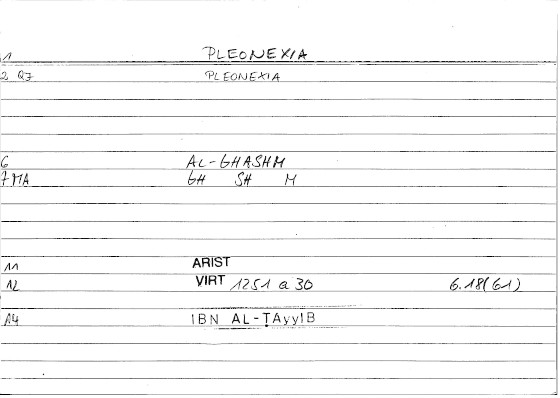 1 PLEONEXIA
2 Q7 PLEONEXIA
6 AL-GHASHM
7 MA GH SH M
11 ARIST
12 VIRT 1251 a 30 6.18(61)
14 IBN AL-ṬAyyIB